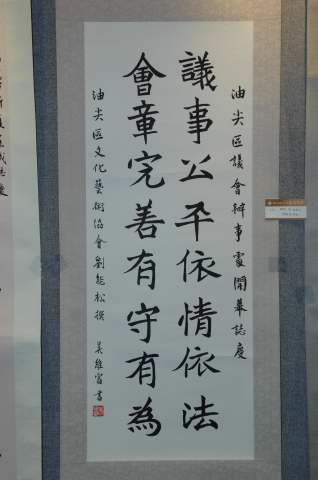 油尖區議會辦事處開幕誌慶
議事公平依情依法
會章完善有守有為
油尖區文化藝術協會劉能松撰 吳維富書